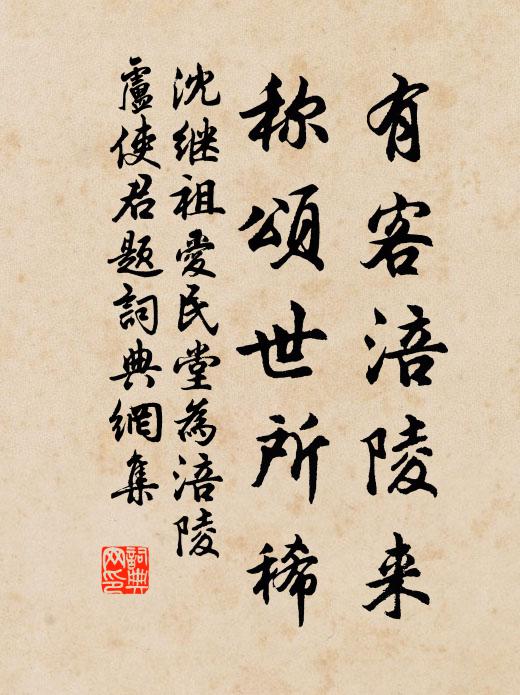 有客涪陵来
称颂世所稀
沈继祖爱民堂為涪陵
盧使君题詞典網集
詞典
网印